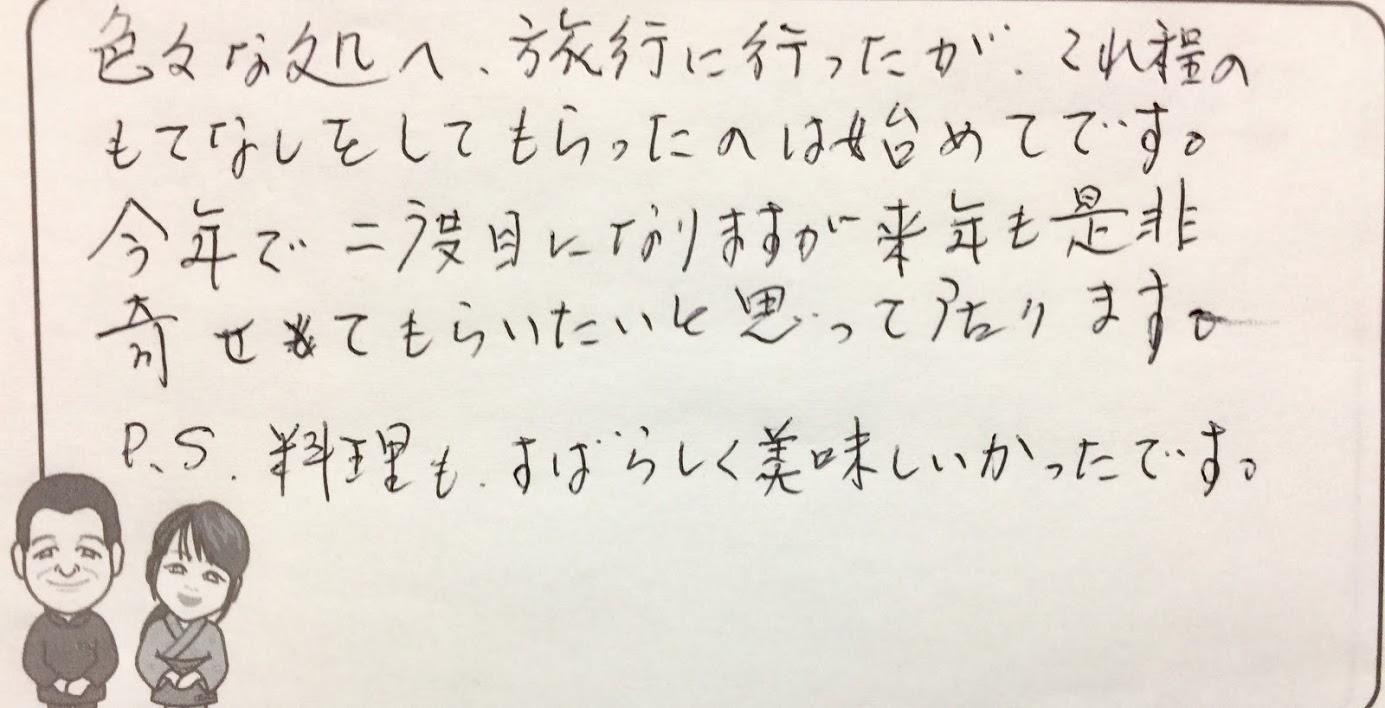 色々な処へ、旅行に行ったが、これ程の
もてなしをしてもらったのは始めてです。
今年で二度目になりますが来年も是非
寄せてもらいたいと思って居ります。
P.S. 料理も、すばらしく美味しいかったです。